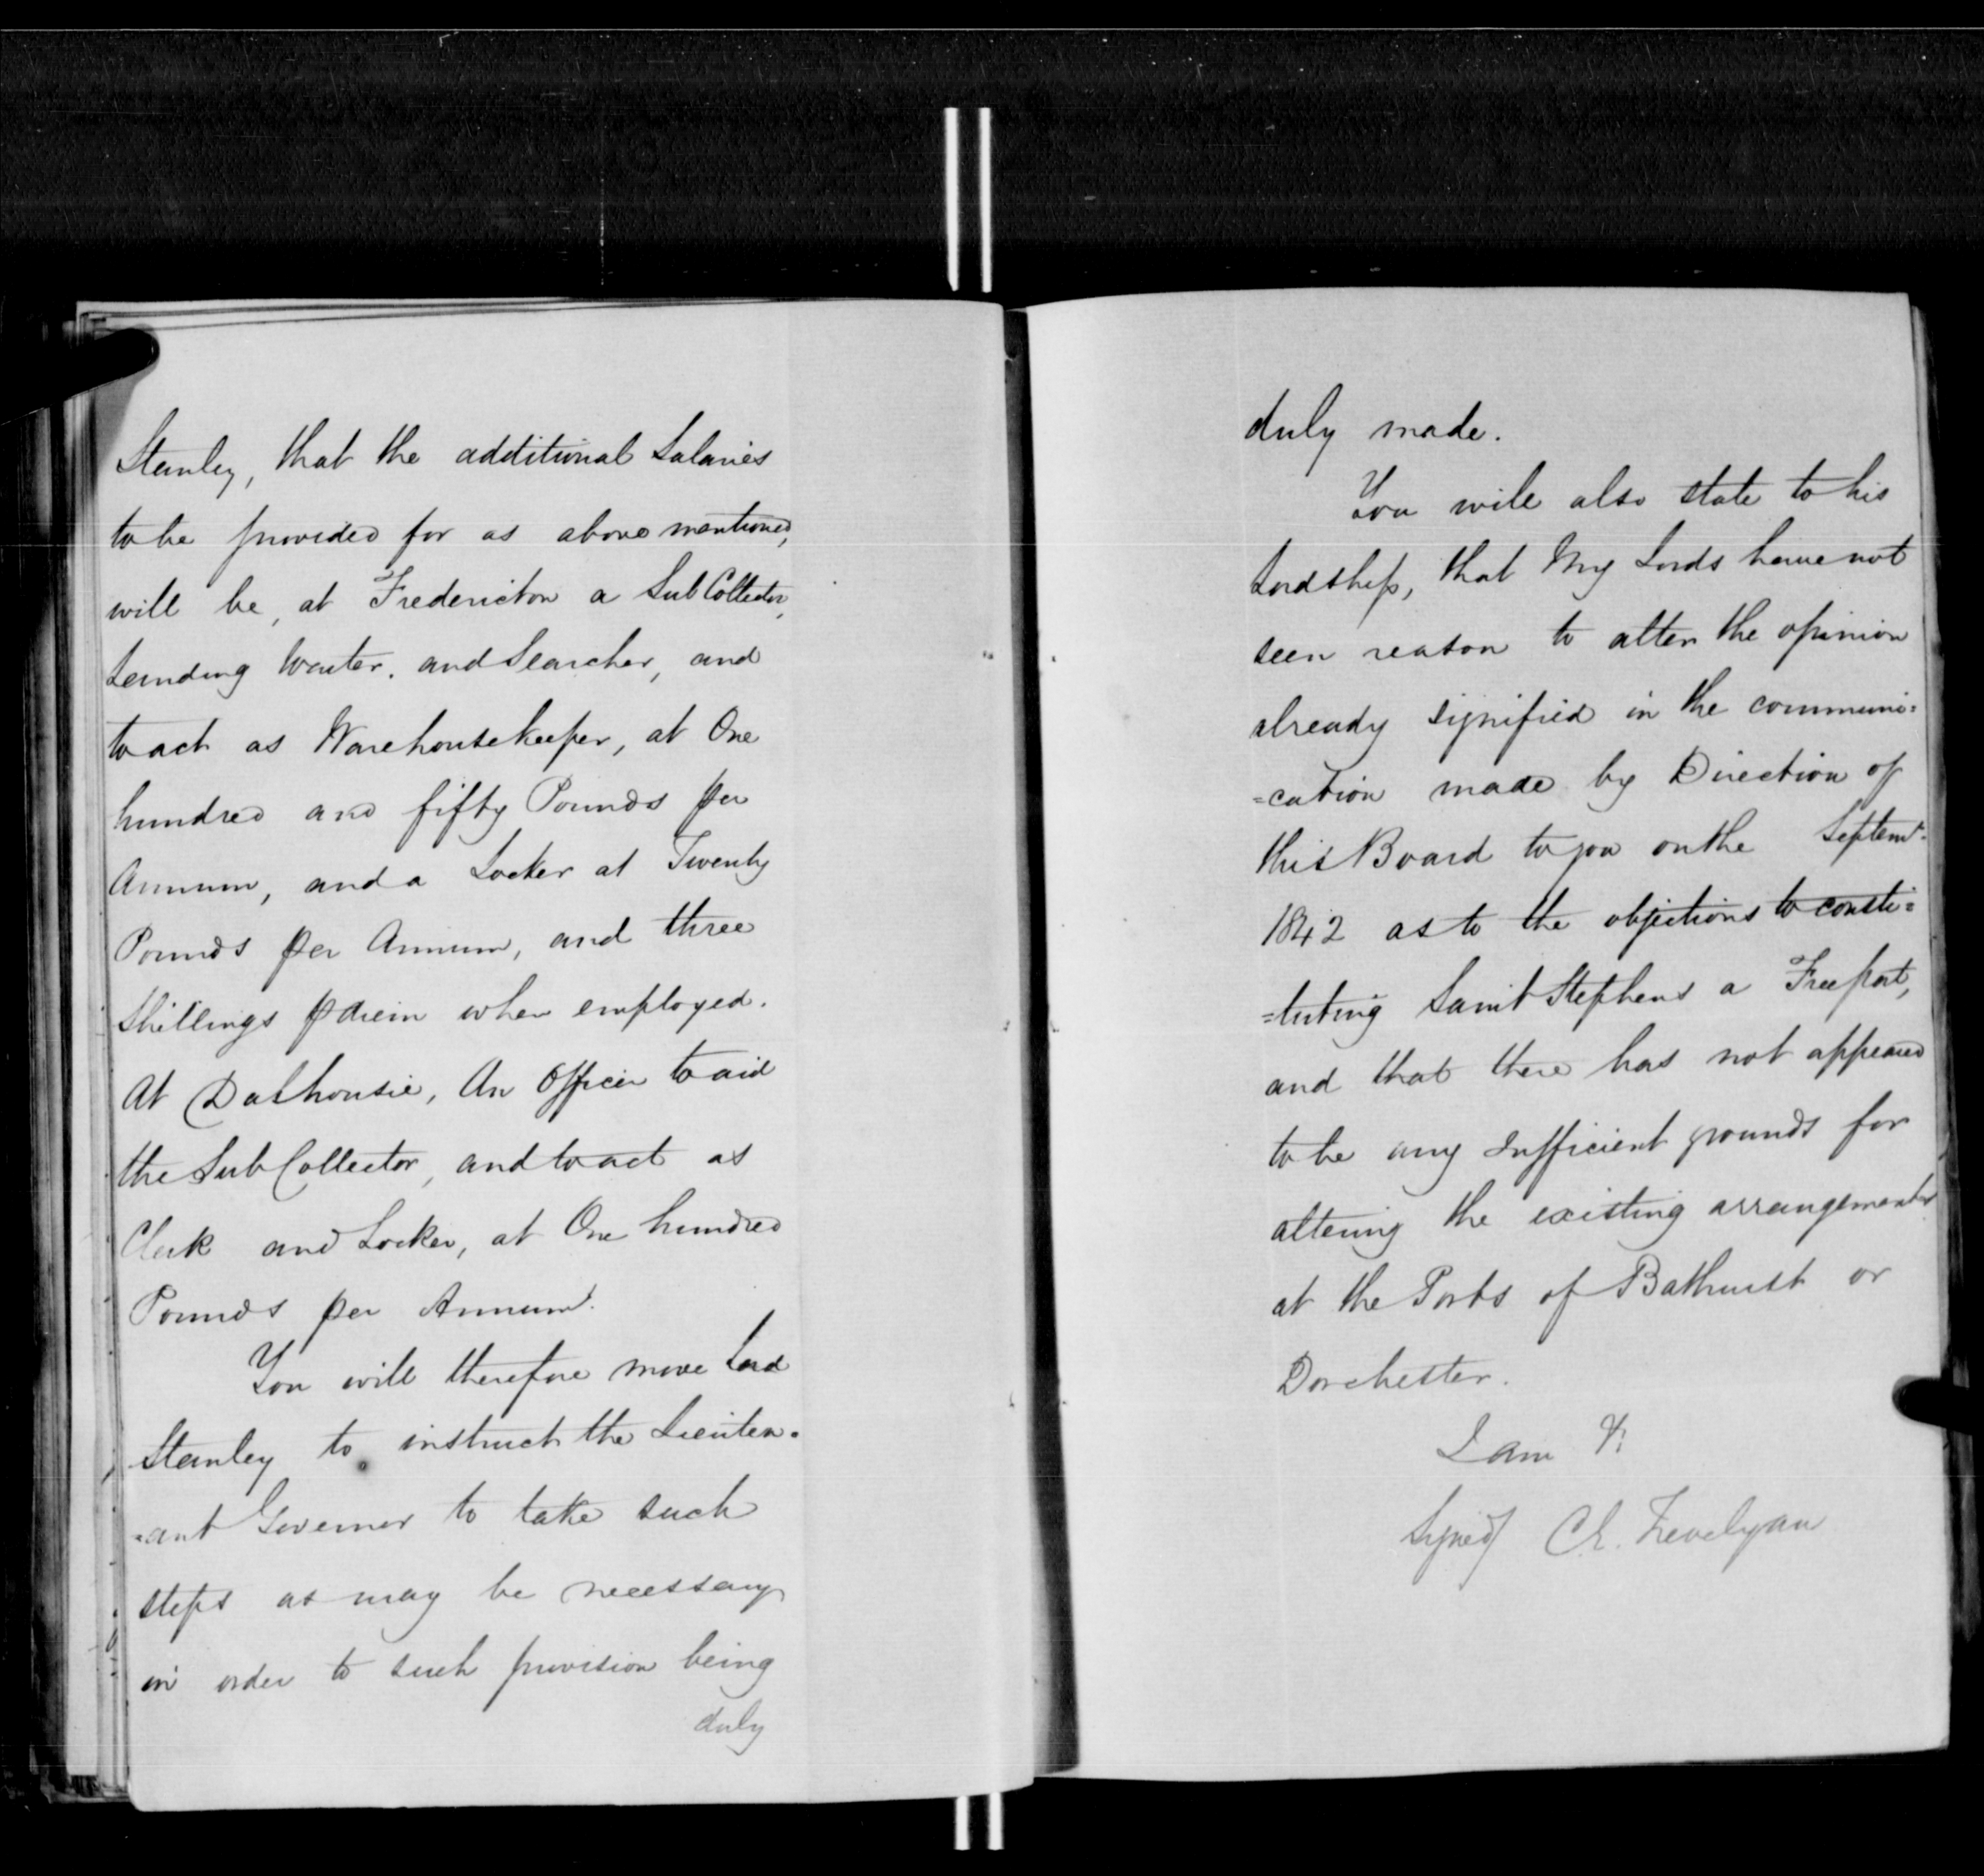 Stanley, that the additional Salaries
to be provided for as above mentioned,
will be, at Fredericton a Sub Collector,
Landing Waiter, and Searcher, and
to act as Warehousekeeper, at One
hundred and fifty Pounds per
Annum, and a Locker at Twenty
Pounds per Annum, and three
Shillings p diem when employed.
At Dalhousie, An Officer to aid
the Sub Collector, and to act as
Clerk and Locker, at One hundred
Pounds per Annum.
You will therefore move Lord
Stanley to instruct the Lieuten-
=ant Governor to take such
steps as may be necessary
in order to such provision being
duly
duly made.
You will also state to his
Lordship, that My Lords have not
seen reason to alter the opinion
already signified in the communi=
=cation made by Direction of
this Board to you on the Septemr.
1842 as to the objections to consti=
=tuting Saint Stephens a Freeport,
and that there has not appeared
to be any sufficient grounds for
altering the existing arrangements
at the Ports of Bathurst or
Dorchester.
I am &c
Signed/ C.E. Trevelyan